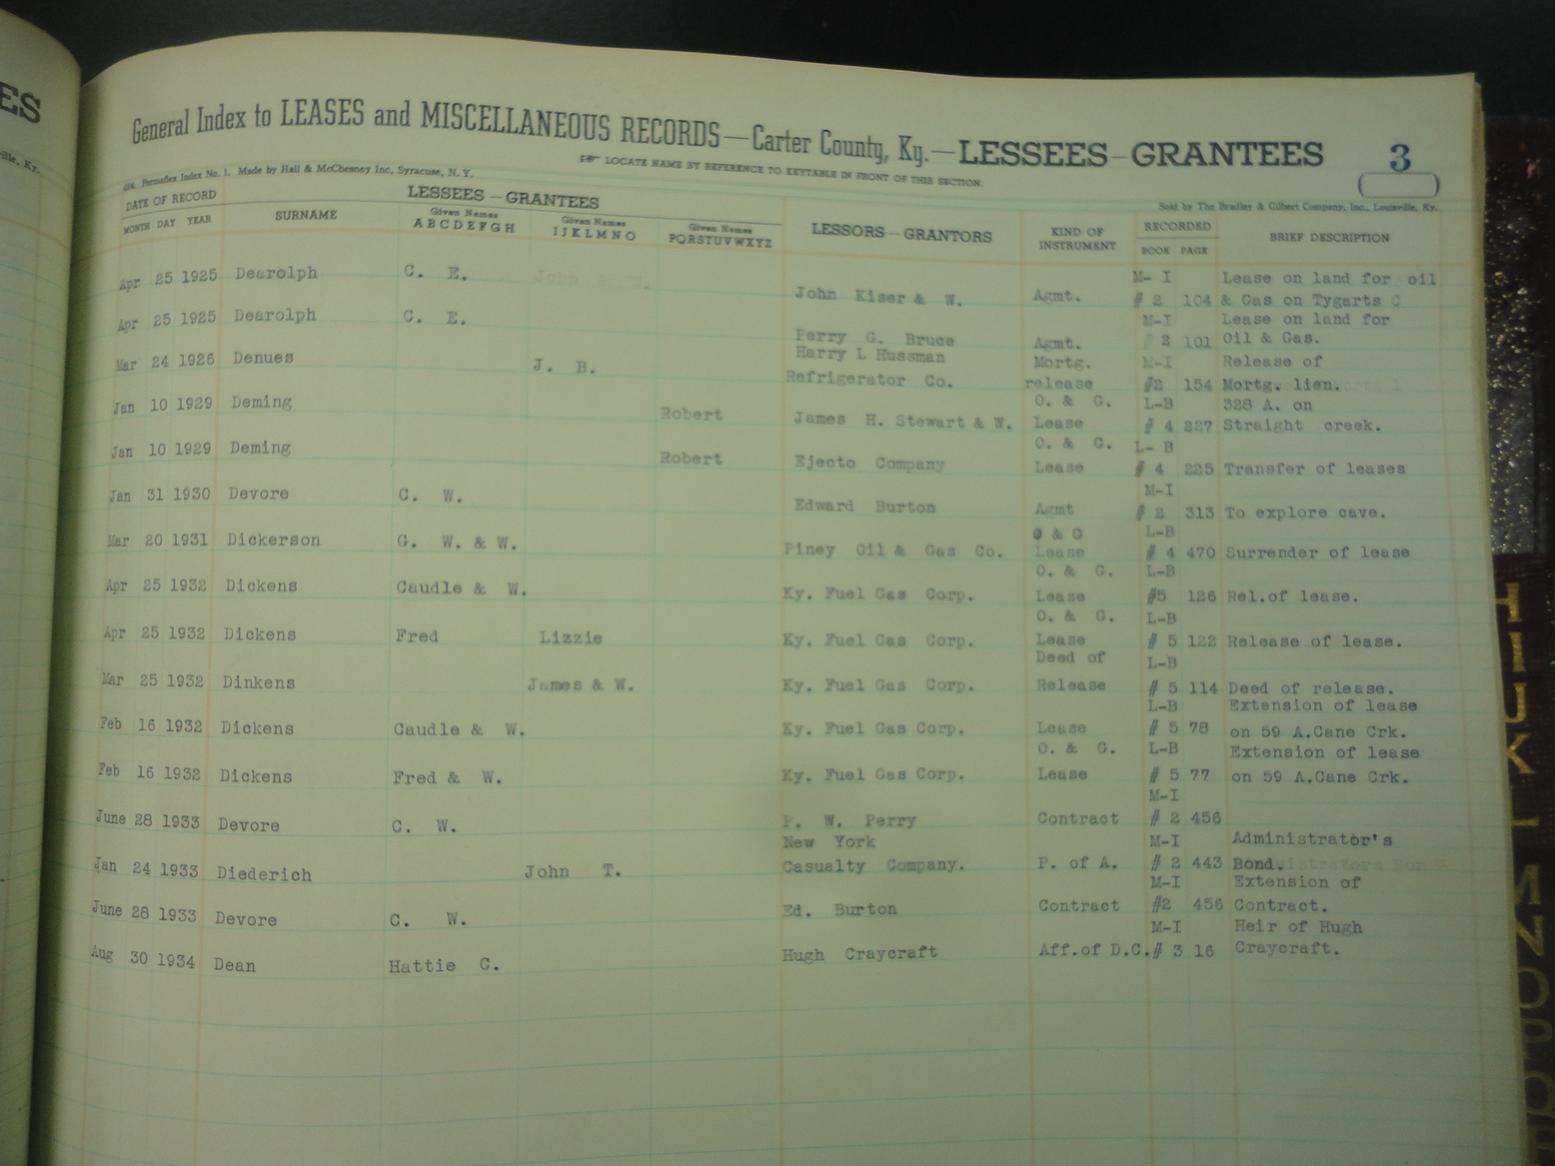 ES
ville, Ky.
General Index to LEASES and MISCELLANEOUS RECORDS—Carter County, Ky.—LESSEES—GRANTEES 3
☞ LOCATE NAME BY REFERENCE TO KEYTABLE IN FRONT OF THIS SECTION.
Permaflex Index No. 1. Made by Hall & McChesney Inc, Syracuse, N. Y.
Sold by The Bradley & Gilbert Company, Inc., Louisville, Ky.
DATE OF RECORD LESSEES—GRANTEES LESSORS—GRANTORS KIND OF INSTRUMENT RECORDED BRIEF DESCRIPTION
MONTH DAY YEAR SURNAME Given Names ABCDEFGH Given Names IJKLMNO Given Names PQRSTUVWXYZ BOOK PAGE
Apr 25 1925 Dearolph C. E. John Kiser & W. Agmt. M-I # 2 104 Lease on land for oil & Gas on Tygarts C
Apr 25 1925 Dearolph C. E. Perry G. Bruce Agmt. M-I # 2 101 Lease on land for Oil & Gas.
Mar 24 1926 Denues J. B. Harry L Hussman Refrigerator Co. Mortg. release M-I #2 154 Release of Mortg. lien.
Jan 10 1929 Deming Robert James H. Stewart & W. O. & G. Lease L-B # 4 227 328 A. on Straight creek.
Jan 10 1929 Deming Robert Ejecto Company O. & G. Lease L-B # 4 225 Transfer of leases
Jan 31 1930 Devore C. W. Edward Burton Agmt M-I # 2 313 To explore cave.
Mar 20 1931 Dickerson G. W. & W. Piney Oil & Gas Co. O & G Lease L-B # 4 470 Surrender of lease
Apr 25 1932 Dickens Caudle & W. Ky. Fuel Gas Corp. O. & G. Lease L-B #5 126 Rel.of lease.
Apr 25 1932 Dickens Fred Lizzie Ky. Fuel Gas Corp. O. & G. Lease L-B # 5 122 Release of lease.
Mar 25 1932 Dinkens James & W. Ky. Fuel Gas Corp. Deed of Release L-B # 5 114 Deed of release.
Feb 16 1932 Dickens Caudle & W. Ky. Fuel Gas Corp. Lease L-B # 5 78 Extension of lease on 59 A.Cane Crk.
Feb 16 1932 Dickens Fred & W. Ky. Fuel Gas Corp. O. & G. Lease L-B # 5 77 Extension of lease on 59 A.Cane Crk.
June 28 1933 Devore C. W. P. W. Perry Contract M-I # 2 456
Jan 24 1933 Diederich John T. New York Casualty Company. P. of A. M-I # 2 443 Administrator's Bond.
June 28 1933 Devore C. W. Ed. Burton Contract M-I #2 456 Extension of Contract.
Aug 30 1934 Dean Hattie C. Hugh Craycraft Aff.of D.C. M-I # 3 16 Heir of Hugh Craycraft.